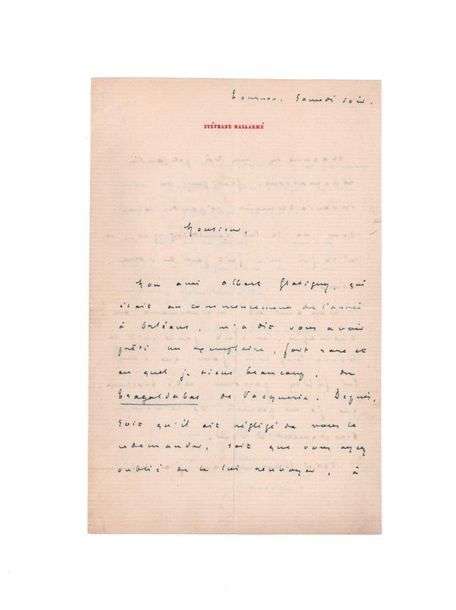 Tournon. Samedi soir.
STÉPHANE MALLARMÉ
Monsieur,
Mon ami Albert Glatigny, qui
était au commencement de l'année
à Orléans, m'a dit vous avoir
prêté un exemplaire, fort rare et
auquel je tiens beaucoup, du
Tragaldabas de Vacquerie. Depuis,
soit qu'il ait négligé de vous le
redemander, soit que vous ayez
oublié de le lui renvoyer, à